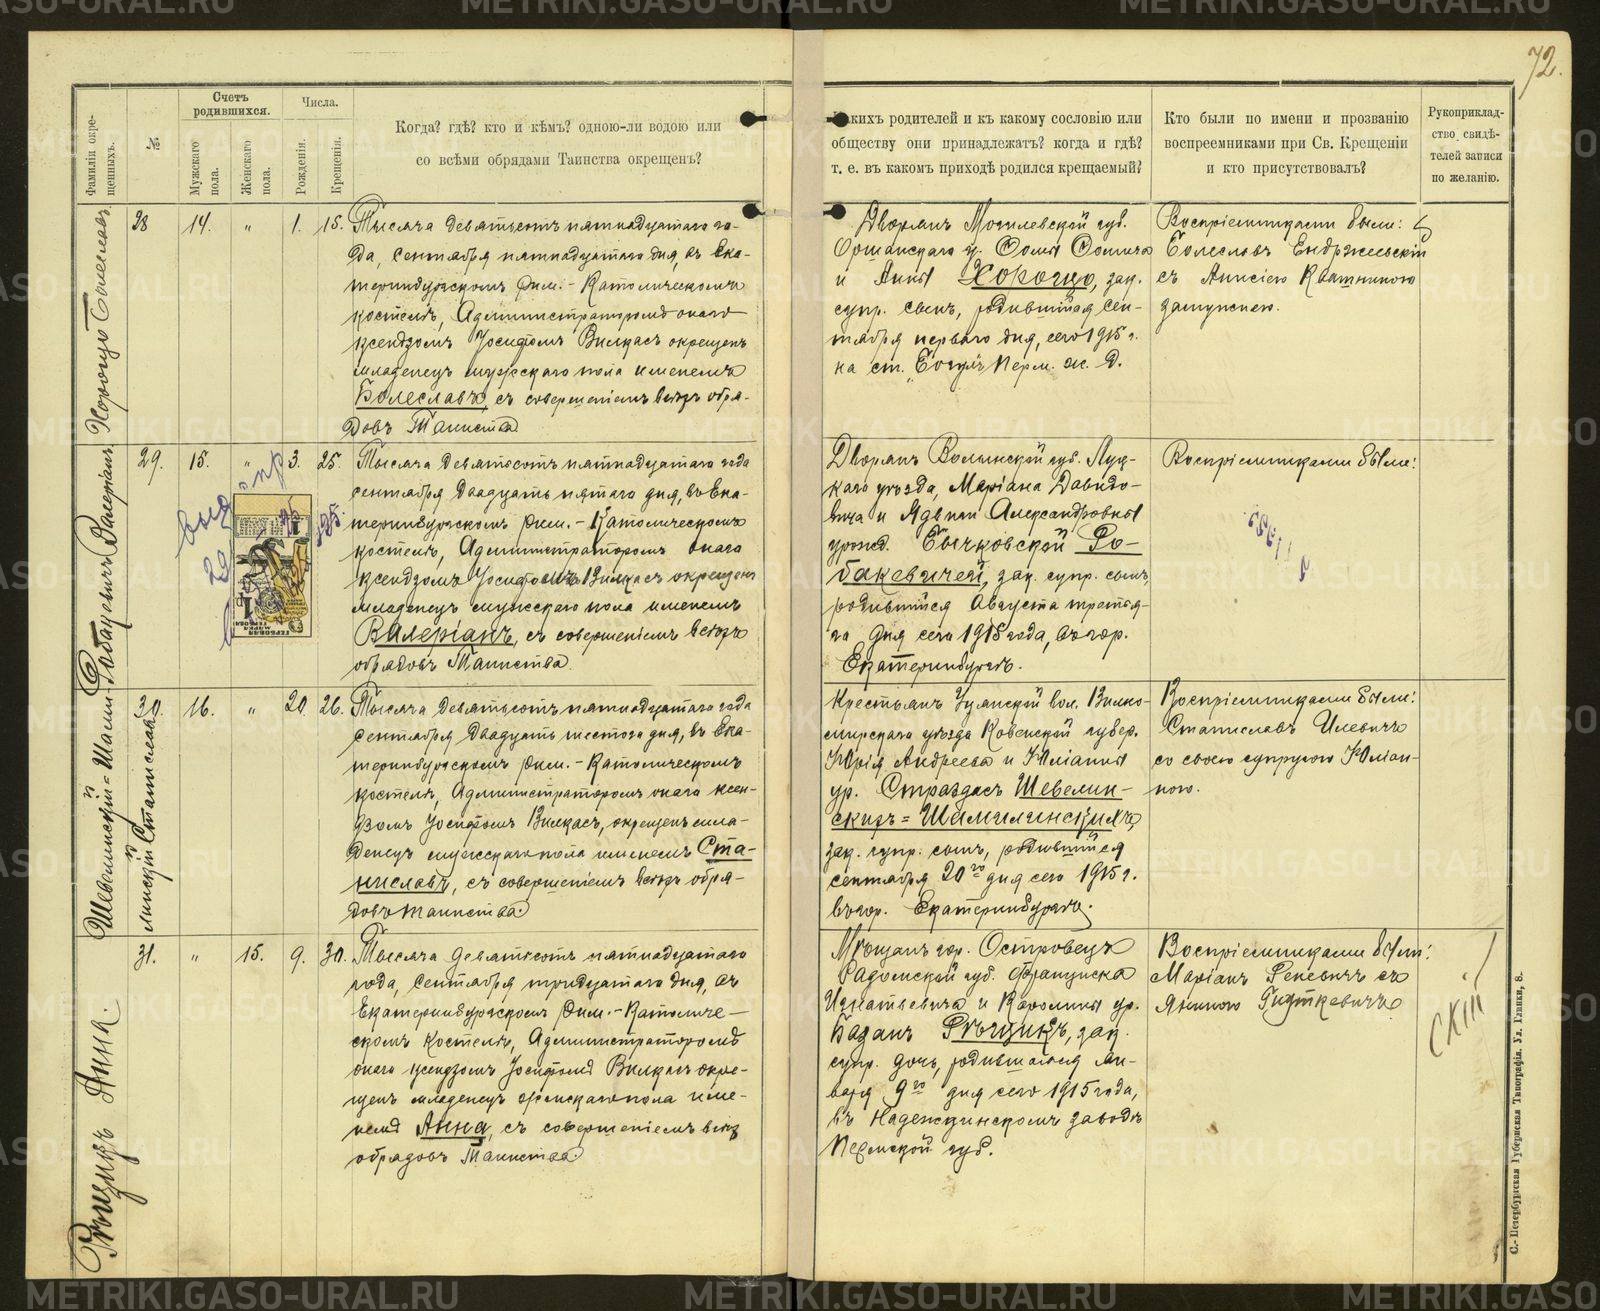 METRIKI.GASO-URAL.RU
72.
Фамиліи окрещенныхъ.
№
Счетъ родившихся.
Мужскаго пола.
Женскаго пола.
Числа.
Рожденія.
Крещенія.
Когда? гдѣ? кто и кѣмъ? одною-ли водою или
со всѣми обрядами Таинства окрещенъ?
Какихъ родителей и къ какому сословію или
обществу они принадлежатъ? когда и гдѣ?
т. е. въ какомъ приходѣ родился крещаемый?
Кто были по имени и прозванію
воспреемниками при Св. Крещеніи
и кто присутствовалъ?
Рукоприклад-
ство свидѣ-
телей записи
по желанію.
Хорощо Болеславъ
28 14. " 1. 15.
Тысяча девятьсотъ пятнадцатаго го-
да, сентября пятнадцатаго дня, въ Ека-
теринбургскомъ Рим.-Католическомъ
костелѣ, Администраторомъ онаго
ксендзомъ Іосифомъ Вилкасъ окрещенъ
младенецъ мужескаго пола именемъ
Болеславъ, съ совершеніемъ всѣхъ обря-
довъ Таинства
Дворянъ Могилевской губ.
Оршанскаго у.
и Анны Хорощо, зак.
супр. сынъ, родившійся сен-
тября перваго дня, сего 1915 г.
на ст. Перм. ж. д.
Воспріемниками были:
Болеславъ Ендржеевскій
съ
замужнею.
Робацевичъ Валеріанъ
29. 15. " 3. 25.
Тысяча девятьсотъ пятнадцатаго года
сентября двадцать пятаго дня, въ Ека-
теринбургскомъ Рим.-Католическомъ
костелѣ, Администраторомъ онаго
ксендзомъ Іосифомъ Вилкасъ окрещенъ
младенецъ мужескаго пола именемъ
Валеріанъ, съ совершеніемъ всѣхъ
обрядовъ Таинства
ГЕРБОВАЯ МАРКА
Дворянъ Волынской губ. Луц-
каго уѣзда, Маріана Давидо-
вича и Ядвиги Александровны
урожд. Бычковской Ро-
бакевичей, зак. супр. сынъ,
родившійся Августа третья-
го дня сего 1915 года, въ гор.
Екатеринбургѣ.
Воспріемниками были:
Шевелинскій-Шами-
линскій Станиславъ
30. 16. " 20. 26.
Тысяча девятьсотъ пятнадцатаго года
сентября двадцать шестого дня, въ Ека-
теринбургскомъ Рим.-Католическомъ
костелѣ, Администраторомъ онаго ксен-
дзомъ Іосифомъ Вилкасъ, окрещенъ мла-
денецъ мужескаго пола именемъ Ста-
ниславъ, съ совершеніемъ всѣхъ обря-
довъ таинства
Крестьянъ Уцянской вол. Вилко-
мирскаго уѣзда Ковенской губер.
Юрія Андреева и Юліанны
ур. Страздасъ Шевелин-
скихъ=Шамилинскихъ,
зак. супр. сынъ, родившійся
сентября 20го дня сего 1915 г.
въ гор. Екатеринбургѣ.
Воспріемниками были:
Станиславъ Илевичъ
со своею супругою Юліан-
ною.
Рѣщикъ Анна.
31. " 15. 9. 30.
Тысяча девятьсотъ пятнадцатаго
года, сентября тридцатаго дня, въ
Екатеринбургскомъ Рим.-Католиче-
скомъ костелѣ, Администраторомъ
онаго ксендзомъ Іосифомъ Вилкасъ окре-
щенъ младенецъ женскаго пола име-
немъ Анна, съ совершеніемъ всѣхъ
обрядовъ Таинства
Мѣщанъ гор. Островецъ
Радомской губ. Францишка
Игнатьевича и Каролины ур.
Базанъ Рѣщикъ, зак.
супр. дочь, родившаяся Ян-
варя 9го дня сего 1915 года,
въ Надеждинскомъ заводѣ
Пермской губ.
Воспріемниками были:
Маріанъ Реневичъ съ
Яниною
CXIII
С.-Петербургская Губернская Типографія. Ул. Глинки, 8.
METRIKI.GASO-URAL.RU